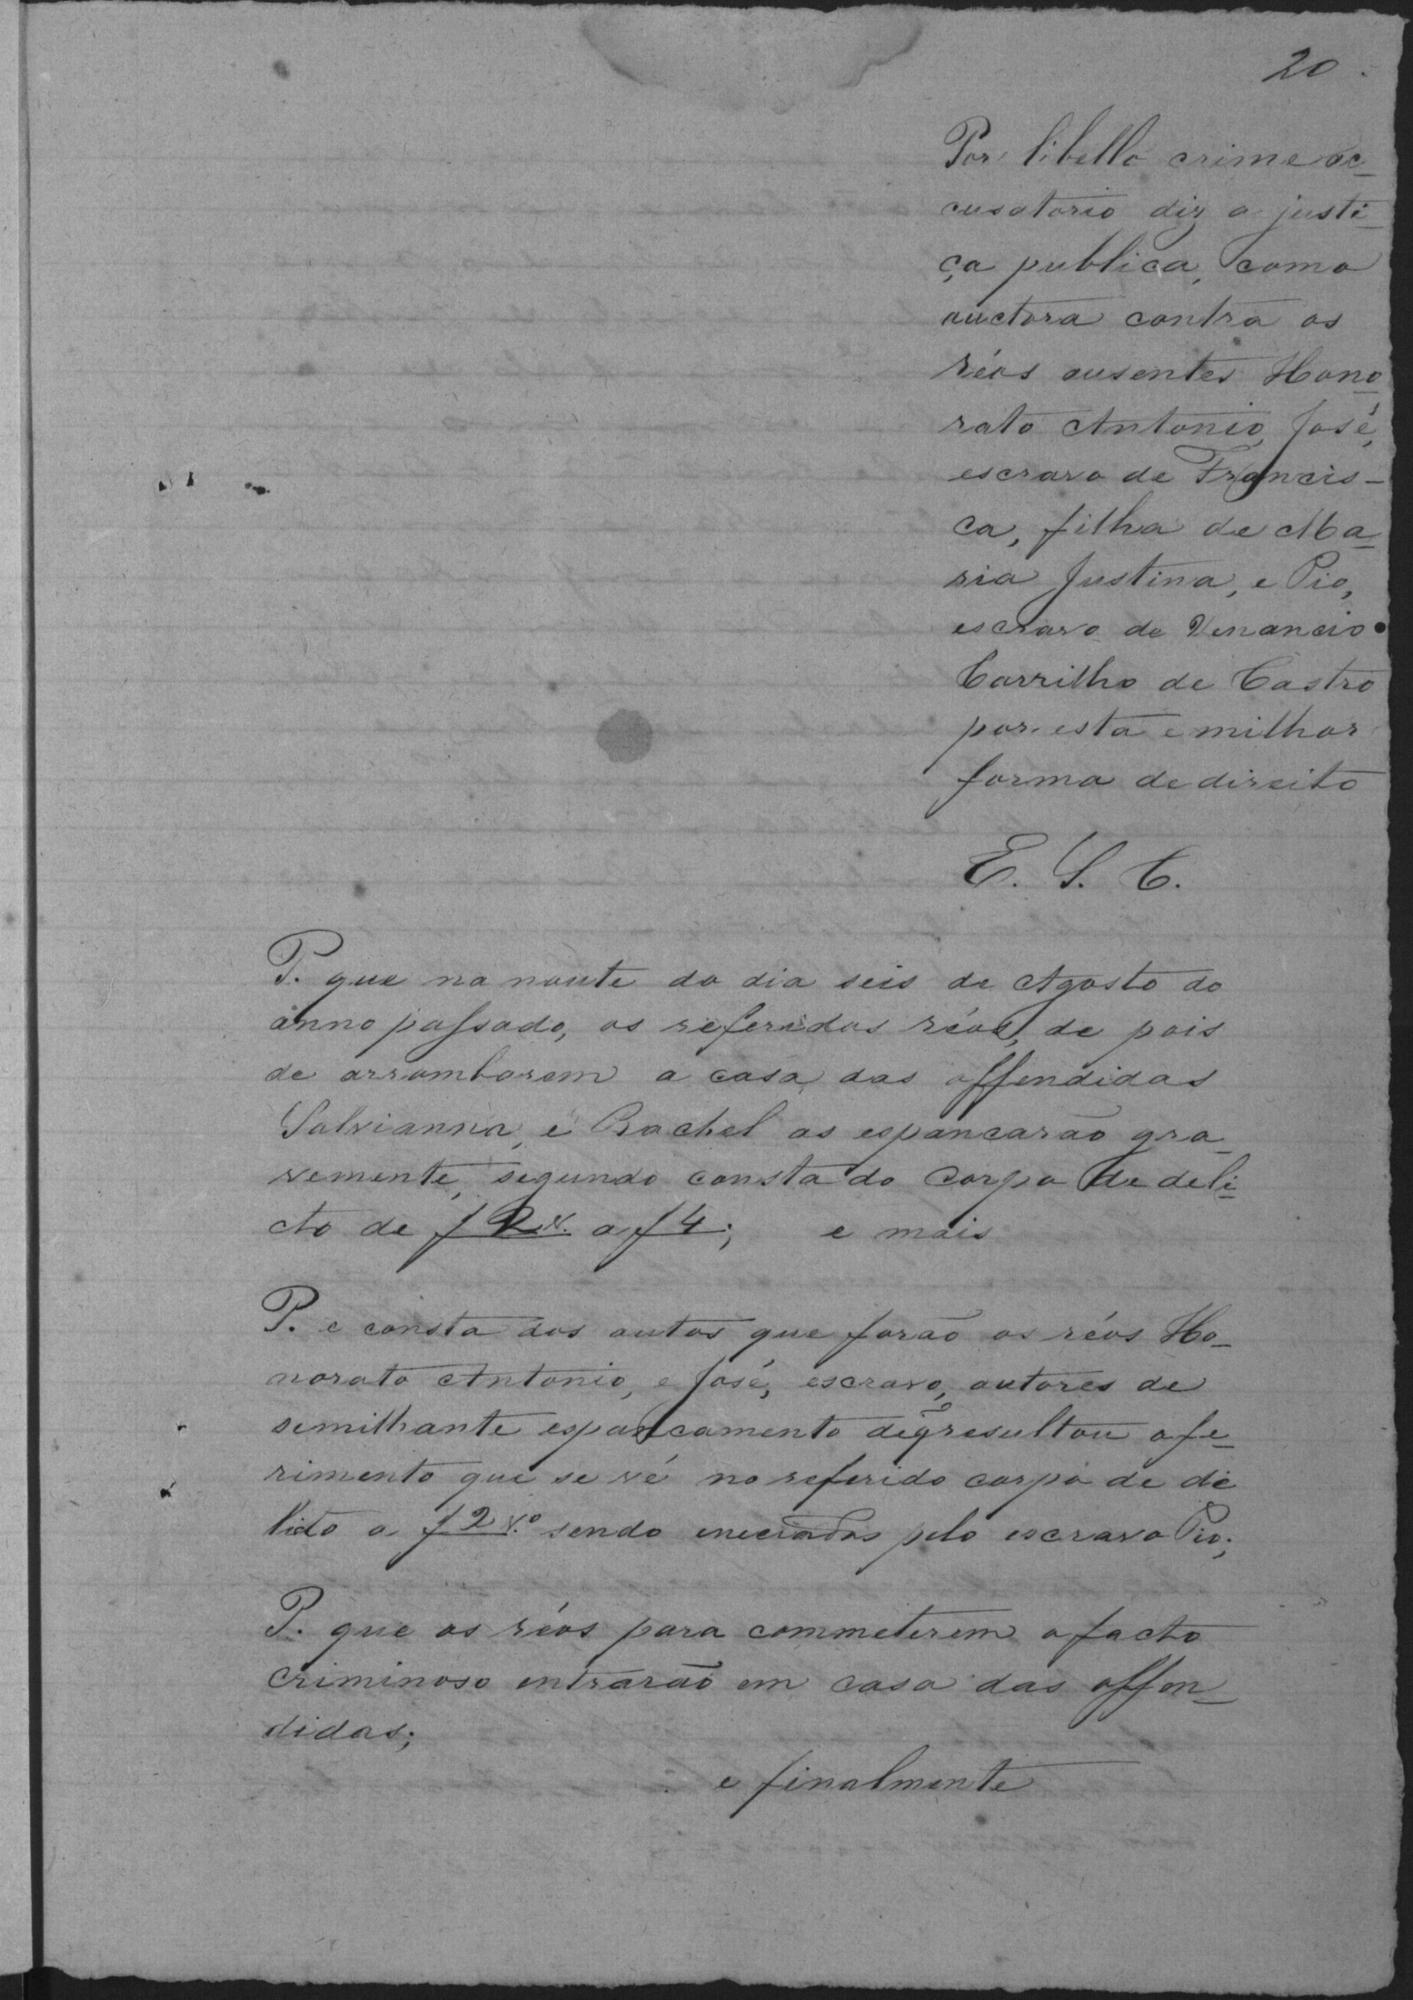 20.
Por libello crime ac-
cusatorio diz a justi-
ça publica, como
auctora contra os
réos ausentes Hono-
rato Antonio, José,
escravo de Francis-
ca, filha de Ma-
ria Justina, e Pio,
escravo de Venancio
Carrilho de Castro
por esta e milhor
forma de direito
E. S. C.
P. que na noute do dia seis de Agosto do
anno passado, os referidos réos, de pois
de arrombarem a casa das offendidas
Salvianna, e Rachel as espancarão gra-
vemente, segundo consta do corpo de deli-
cto de f 2 v. a f 4; e mais
P. e consta dos autos que forão os réos Ho-
norato Antonio, e José, escravo, autores de
semilhante espancamento de q̃ resultou o fe-
rimento que se vê no referido corpo de de
licto a f 2 v.º sendo pelo escravo Pio;
P. que os réos para commeterem o facto
criminoso entrarão em casa das offen-
didas;
e finalmente